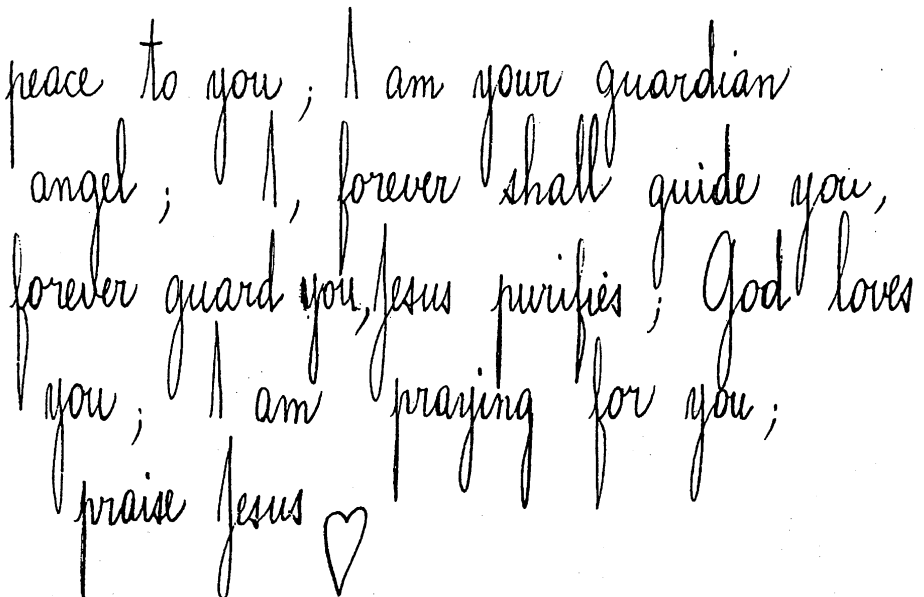 peace to you ; I am your guardian
angel ; I, forever shall guide you,
forever guard you, Jesus purifies ; God loves
you ; I am praying for you ;
praise Jesus ♡